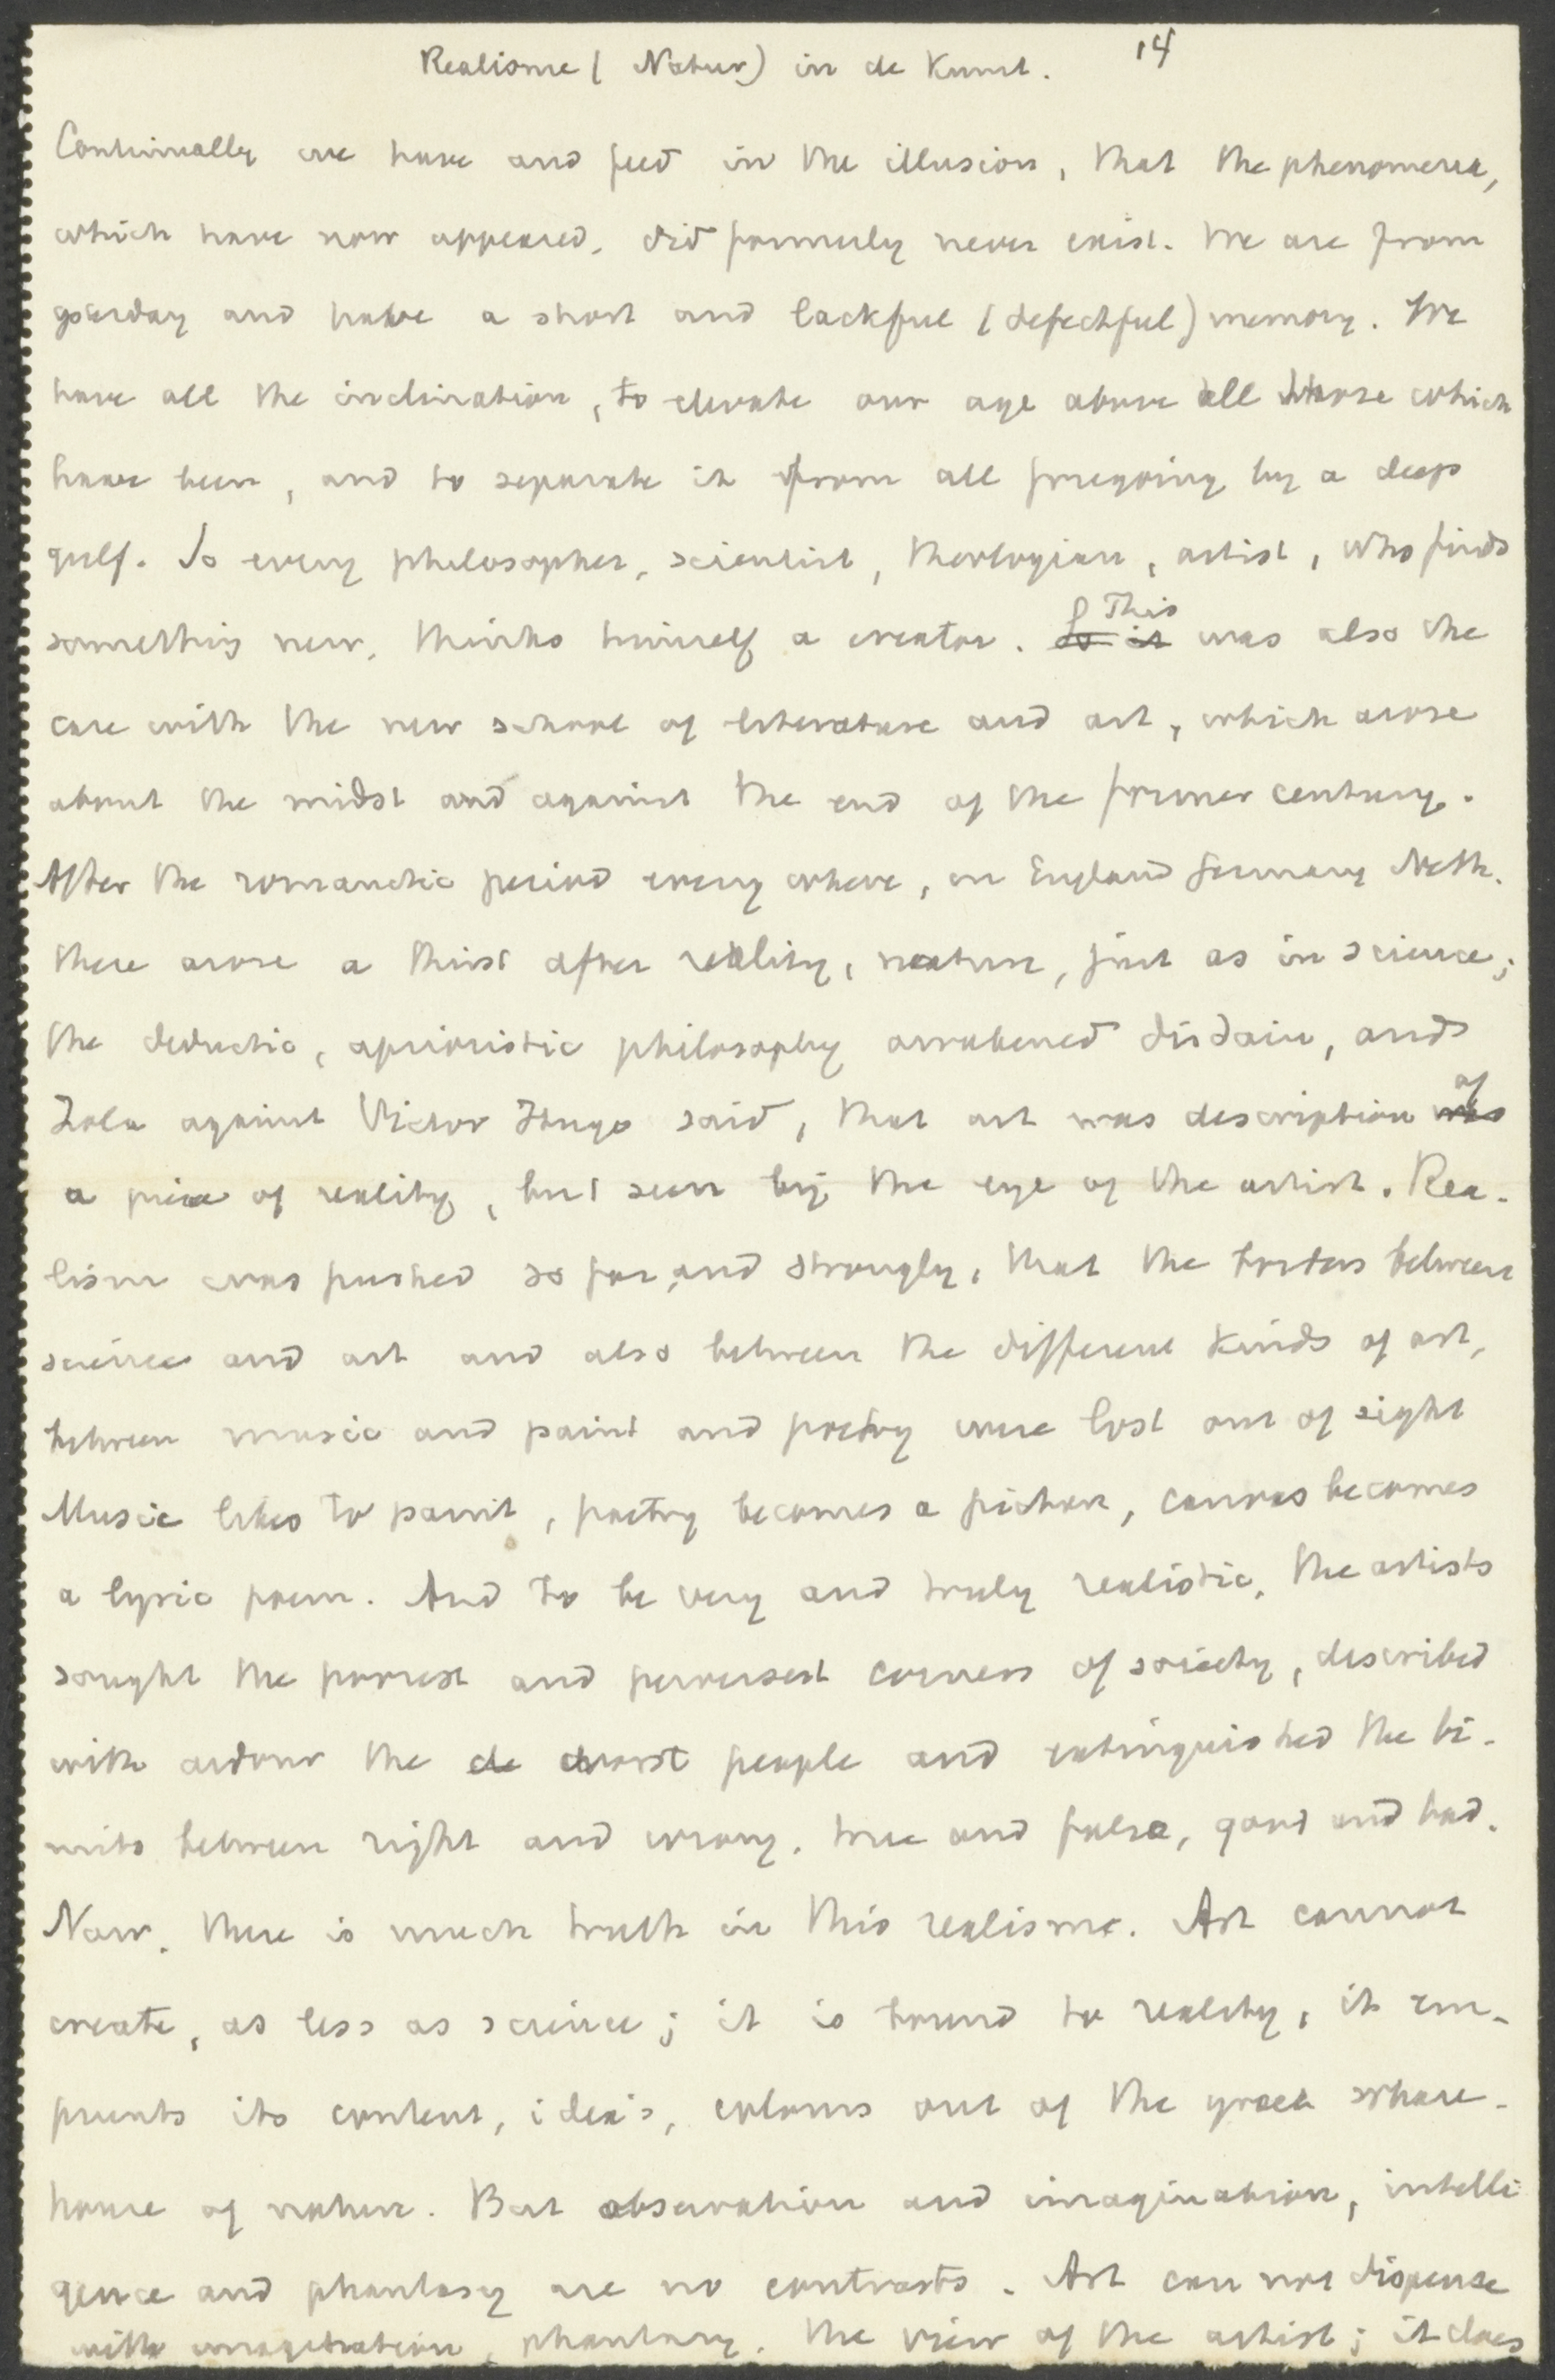 Realisme (Natur) in de Kunst. 14
Continually we have and feed in the illusion, that the phenomena,
which have now appeared, did formerly never exist. We are from
yesterday and have a short and lackful (defectful) memory. We
have all the inclination, to elevate our age above all those which
have been, and to separate it from all foregoing by a deep
gulf. So every philosopher, scientist, theologian, artist, who finds
something new, thinks himself a creator. So it This was also the
case with the new school of literature and art, which arose
about the midst and against the end of the former century.
After the romantic period every where, in England Germany Neth.
there arose a thirst after reality, nature, just as in science;
the deductic, aprioristic philosophy awakened disdain, and
Zola against Victor Hugo said, that art was description was of
a piece of reality, but seen by the eye of the artist. Rea-
lism was pushed so far, and strongly, that the borders between
science and art and also between the different kinds of art,
between music and paint and poetry were lost out of sight
Music likes to paint, poetry becomes a picture, canvas becomes
a lyric poem. And to be very and truly realistic, the artists
sought the poorest and perversest corners of society, described
with ardour the de worst people and extinguished the li-
mits between right and wrong, true and false, good and bad.
Now, there is much truth in this realisme. Art cannot
create, as less as science; it is bound to reality, it em-
prunts its content, idea's, colours out of the great whare-
house of nature. But observation and imagination, intelli
gence and phantasy are no contrasts. Art can not dispense
with imagination, phantasy, the view of the artist; it does